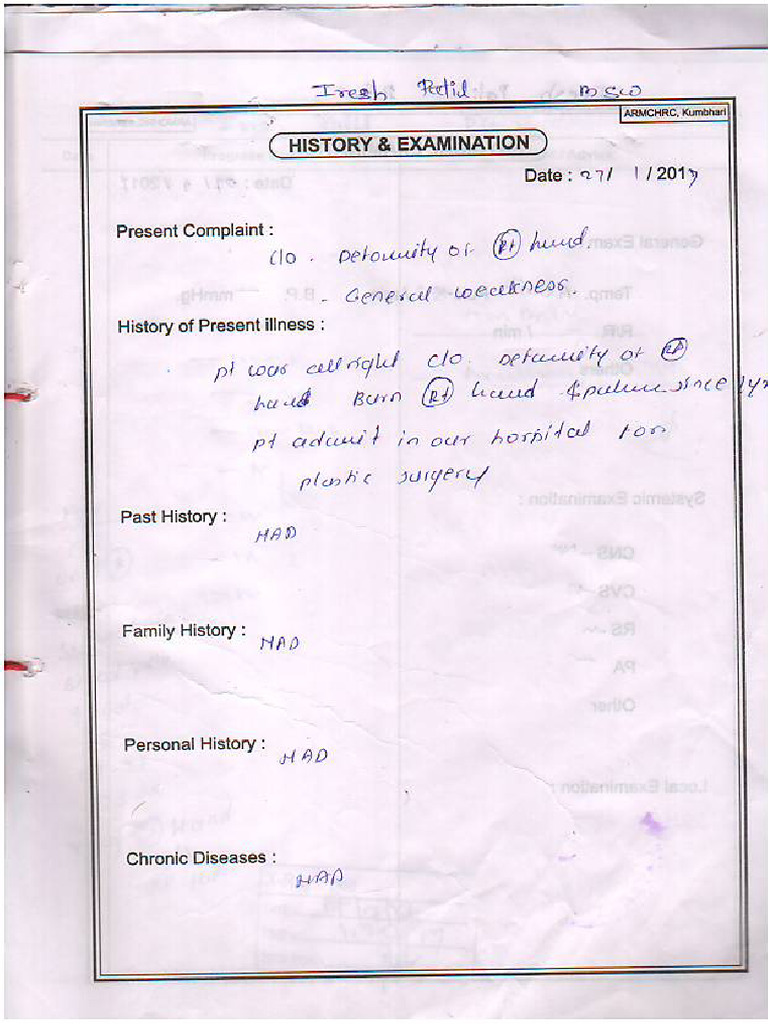 Iresh Patil BSW
ARMCHRC, Kumbhari
HISTORY & EXAMINATION
Date : 27/ 1 / 2017
Present Complaint :
C/o . Deformity of Rt hand.
- General weakness.
History of Present illness :
pt was allright c/o. Deformity of Rt
hand Burn Rt hand since 1yr
pt admit in our hospital for
plastic surgery
Past History :
NAD
Family History :
NAD
Personal History :
NAD
Chronic Diseases :
NAD